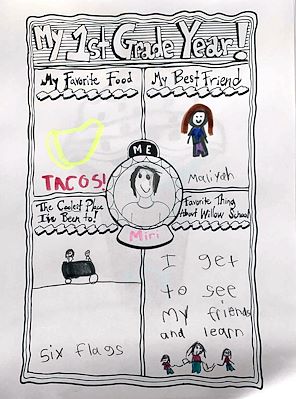 My 1st Grade Year!
My Favorite Food
My Best Friend
TACOS!
Maliyah
ME
Miri
The Coolest Place
I've Been to!
Six flags
Favorite Thing
About Willow School
I get
to see
My friends
and learn